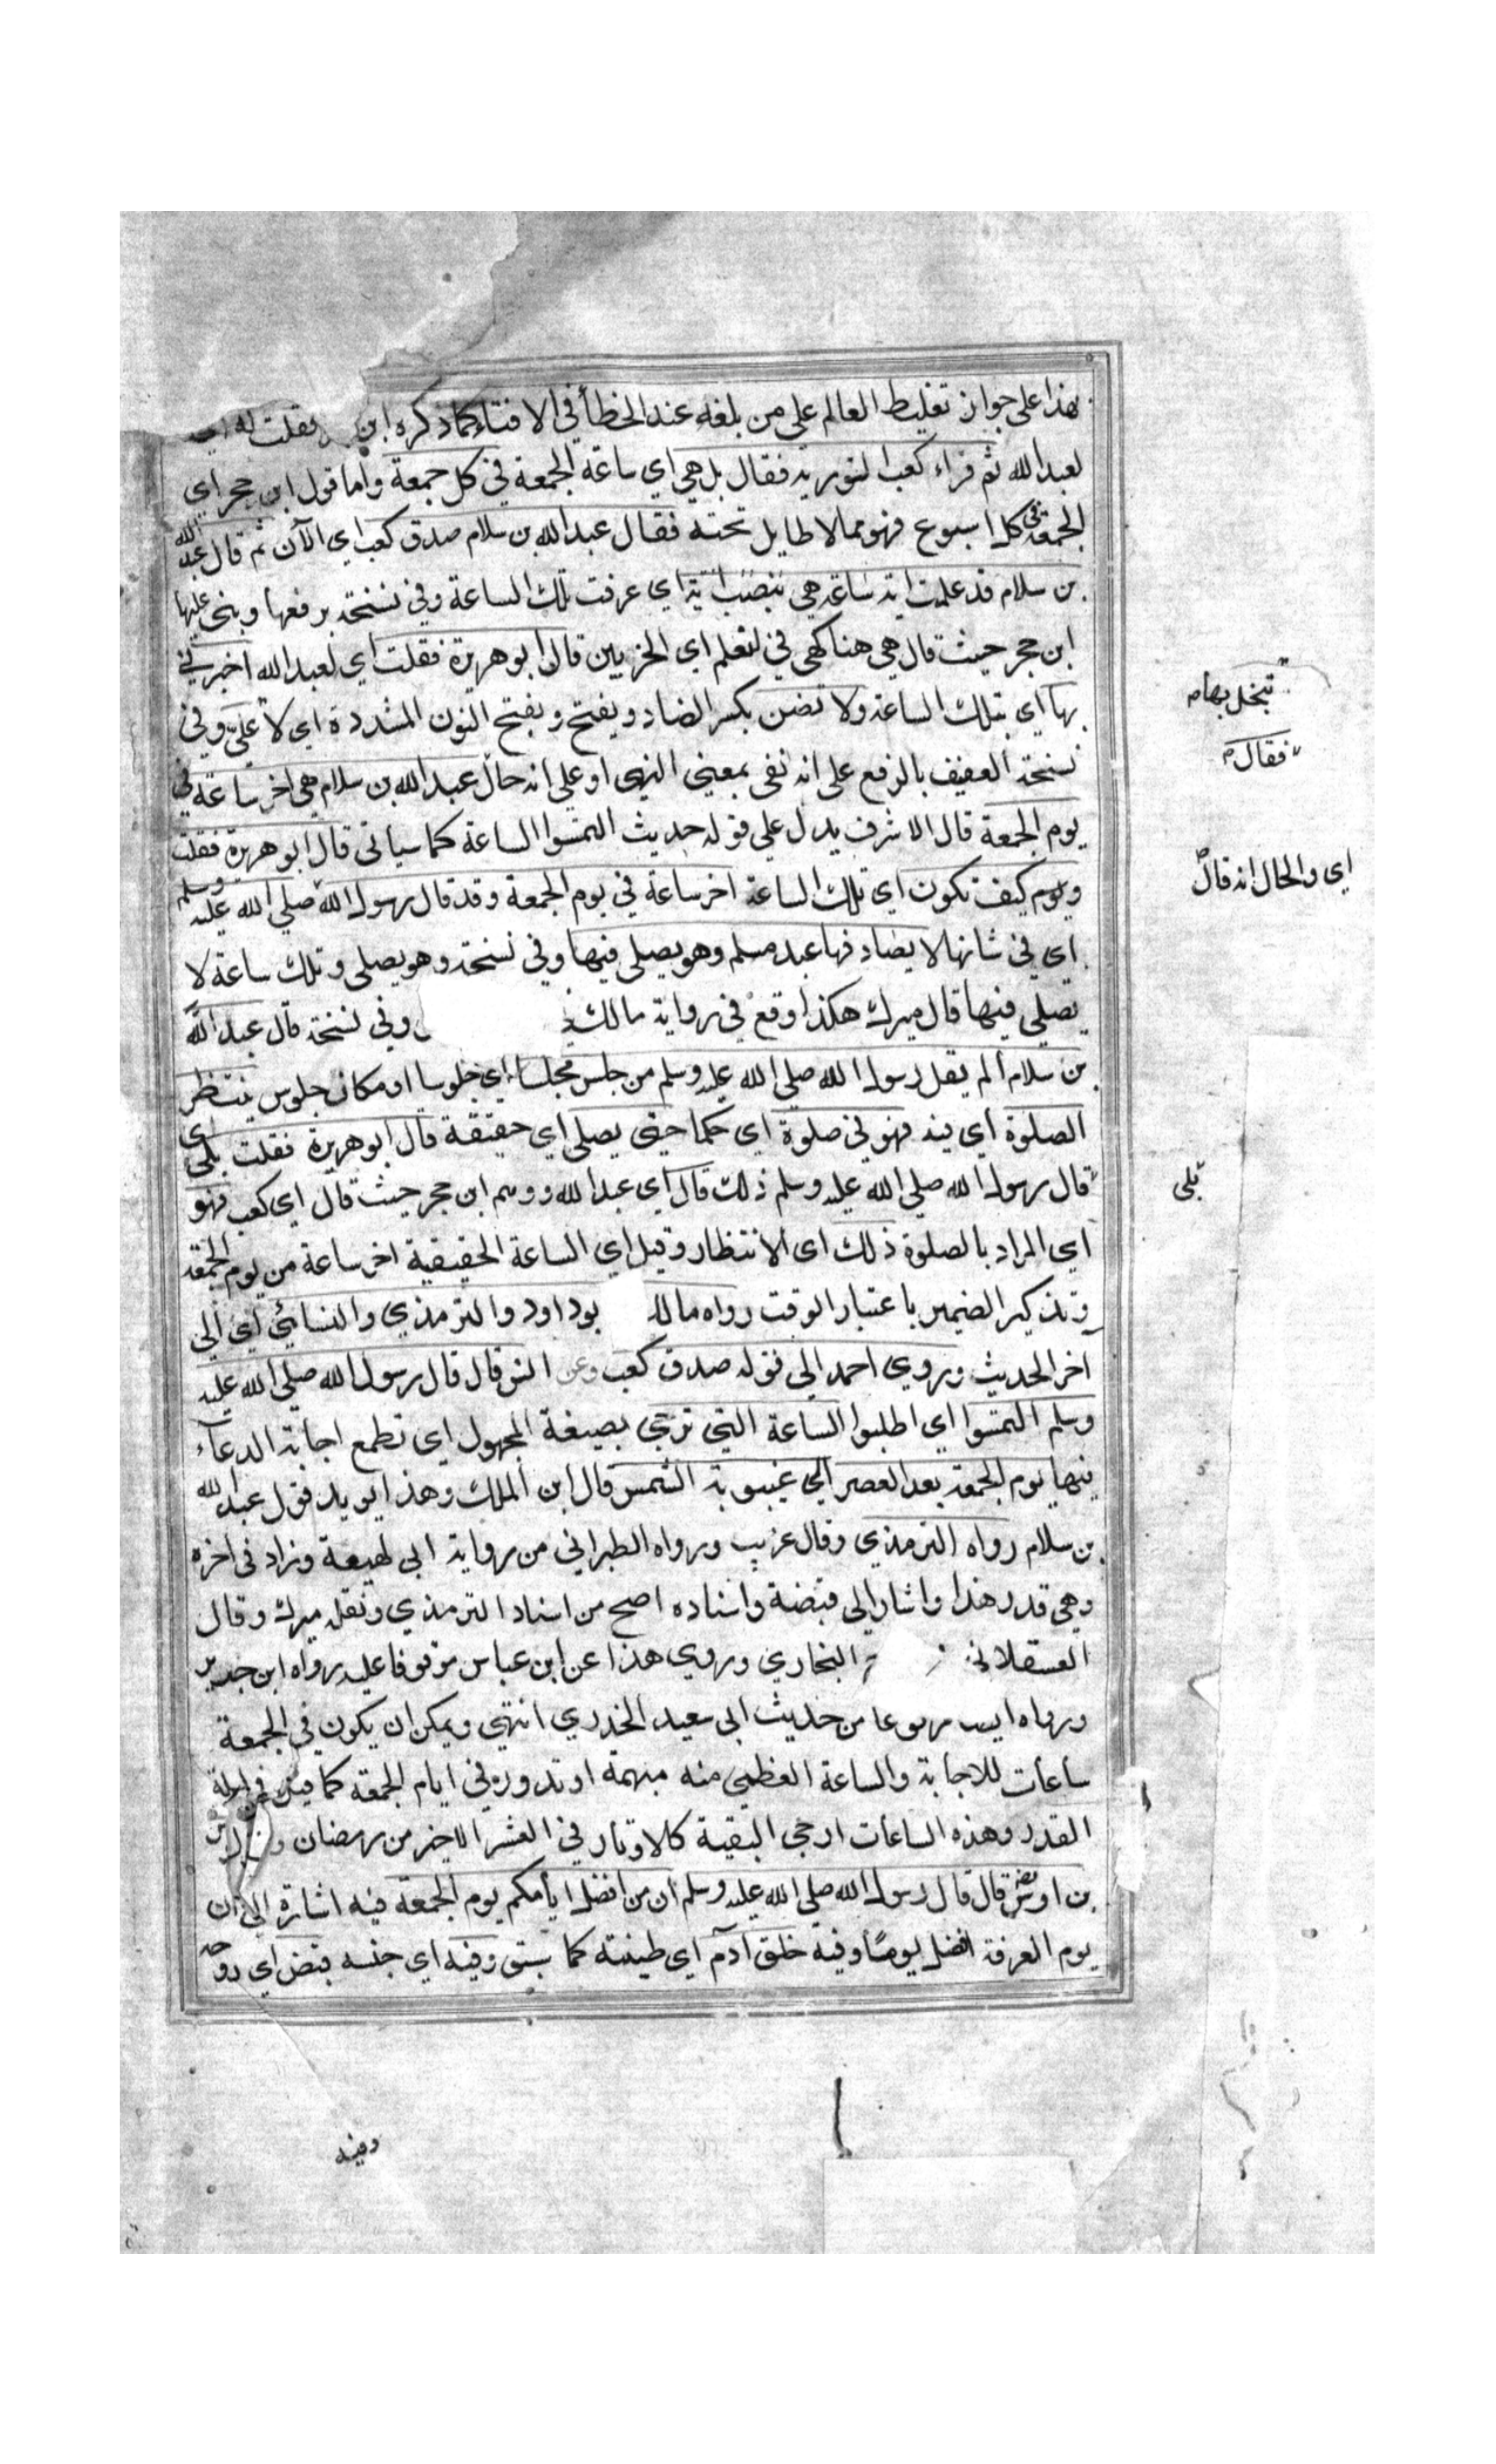 بهذا على جواز تغليط العالم على من بلغه عنه الخطأ في الافتاء كما ذكره ابن فقلت له اي
لعبد الله ثم قراء كعب التورية فقال بل هي اي ساعة الجمعة في كل جمعة واما قول ابن حجر اي
الجمعة في كل اسبوع فهو مما لا طايل تحته فقال عبد الله بن سلام صدق كعب اي الآن ثم قال عبد الله
بن سلام قد علمت اية ساعة هي بنصب اية اي عرفت تلك الساعة وفي نسخة برفعها وبنى عليها
ابن حجر حيث قال هي هنا كهي في لنعلم اي الحزبين قال ابو هريرة فقلت اي لعبد الله اخبرني
بها اي بتلك الساعة ولا تضن بكسر الضاد ويفتح وبفتح النون المشددة اي لا علي وفي
تبخل بها
نسخة العفيف بالرفع على انه نفى بمعنى النهى او على انه حال عبد الله بن سلام هي اخر ساعة في
فقال
يوم الجمعة قال الاشرف يدل على قوله حديث التمسوا الساعة كما سياتى قال ابو هريرة فقلت
وكيف تكون اي تلك الساعة اخر ساعة في يوم الجمعة وقد قال رسول الله صلى الله عليه وسلم
اى والحال انه قال
اى في شانها لا يصادفها عبد مسلم وهو يصلي فيها وفي نسخة وهو يصلى وتلك ساعة لا
يصلي فيها قال ميرك هكذا وقع في رواية مالك وفي نسخة قال عبد الله
بن سلام ألم يقل رسول الله صلى الله عليه وسلم من جلس مجلسا اي جلوسا او مكان جلوس ينتظر
الصلوة أي فيه فهو في صلوة اي حكما حتى يصلى اي حقيقة قال ابو هريرة فقلت بلى اى
قال رسول الله صلى الله عليه وسلم ذلك قال اي عبد الله ووهم ابن حجر حيث قال اي كعب فهو
بلى
أي المراد بالصلوة ذلك اى الانتظار وقيل اي الساعة الحقيقية اخر ساعة من يوم الجمعة
وتذكير الضمير باعتبار الوقت رواه مالك بو داود والترمذي والنسائي اي الى
اخر الحديث وروى احمد الى قوله صدق كعب وعن انس قال قال رسول الله صلى الله عليه
وسلم التمسوا اي اطلبوا الساعة التي ترجى بصيغة المجهول اى تطمع اجابة الدعاء
فيها يوم الجمعة بعد العصر الى غيبوبة الشمس قال ابن الملك وهذا يويد قول عبد الله
بن سلام رواه الترمذي وقال غريب ورواه الطبراني من رواية ابى لهيعة وزاد في اخره
وهي قدر هذا واشار الى قبضة واسناده اصح من اسناد الترمذي ونقله ميرك وقال
العسقلاني البخاري وروى هذا عن ابن عباس موقوفا عليه رواه ابن جرير
ورواه ايضا مرفوعا من حديث ابى سعيد الخدري انتهى ويمكن ان يكون في الجمعة
ساعات للاجابة والساعة العظمى منه مبهمة او تدور في ايام الجمعة كما قيل في ليلة
القدر وهذه الساعات ارجى البقية كالاوتار في العشر الاخير من رمضان وعن اوس
بن اوس قال قال رسول الله صلى الله عليه وسلم ان من افضل ايامكم يوم الجمعة فيه اشارة الى ان
يوم العرفة افضل يومًا وفيه خلق آدم اي طينته كما سبق وفيه اي جنسه قبض اي روحه
وفيه